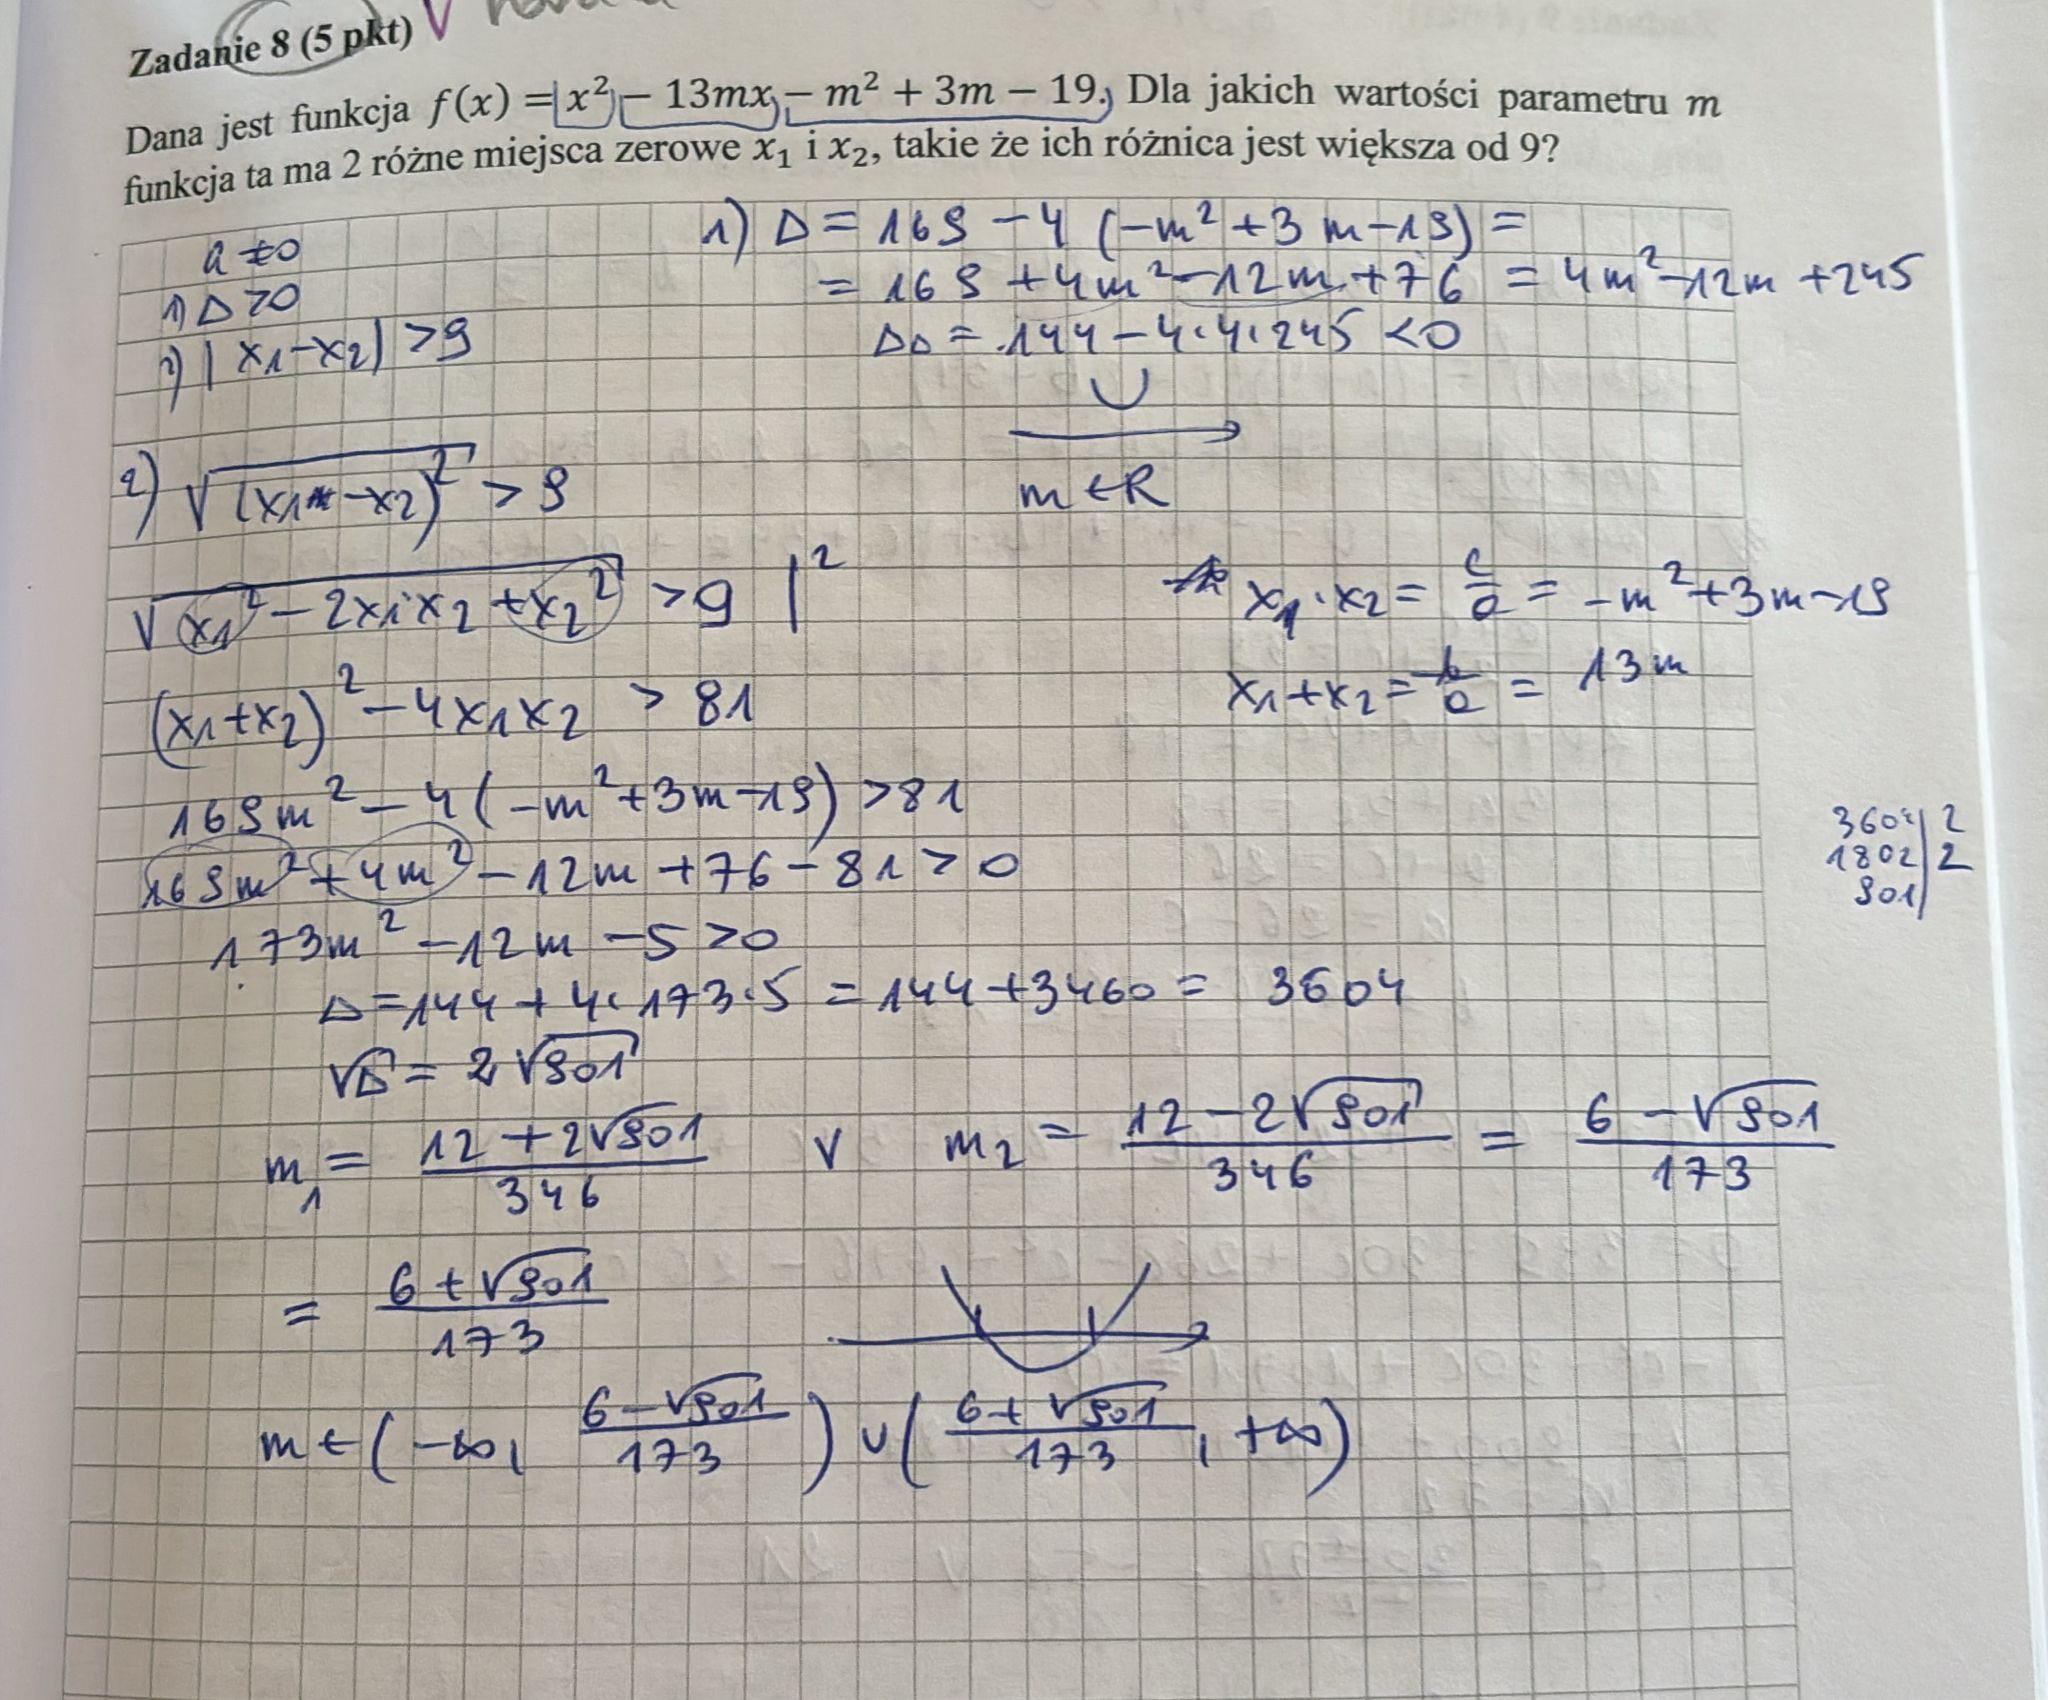 Zadanie 8 (5 pkt) V
Dana jest funkcja f(x) = x² − 13mx − m² + 3m − 19. Dla jakich wartości parametru m
funkcja ta ma 2 różne miejsca zerowe x₁ i x₂, takie że ich różnica jest większa od 9?
a ≠ 0
1) Δ > 0
2) |x₁−x₂| > 9
1) Δ = 169 − 4 (−m² + 3m − 19) =
= 169 + 4m² − 12m + 76 = 4m² − 12m + 245
ΔΔ = 144 − 4·4·245 < 0
m ∈ R
2) √(x₁ − x₂)² > 9
√x₁² − 2x₁·x₂ + x₂² > 9 |²
x₁·x₂ = c/a = −m² + 3m − 19
(x₁+x₂)² − 4x₁x₂ > 81
x₁+x₂ = −b/a = 13m
169m² − 4(−m² + 3m − 19) > 81
169m² + 4m² − 12m + 76 − 81 > 0
3604 | 2
1802 | 2
901 |
173m² − 12m − 5 > 0
Δ = 144 + 4·173·5 = 144 + 3460 = 3604
√Δ = 2√901
m₁ = (12 + 2√901)/346 ∨ m₂ = (12 − 2√901)/346 = (6 − √901)/173
= (6 + √901)/173
m ∈ (−∞, (6 − √901)/173) ∪ ((6 + √901)/173, +∞)